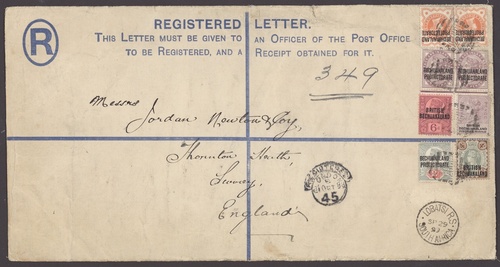 REGISTERED LETTER.
THIS LETTER MUST BE GIVEN TO AN OFFICER OF THE POST OFFICE
TO BE REGISTERED, AND A RECEIPT OBTAINED FOR IT.
R
349
Messrs
Jordan Newton & Coy,
Thornton Heath,
Surrey
England
BECHUANALAND
PROTECTORATE
BECHUANALAND
PROTECTORATE
BRITISH
BECHUANALAND
BECHUANALAND
PROTECTORATE
BRITISH
BECHUANALAND
45
LOBATSI R.S.
SP 29
97
SOUTH AFRICA